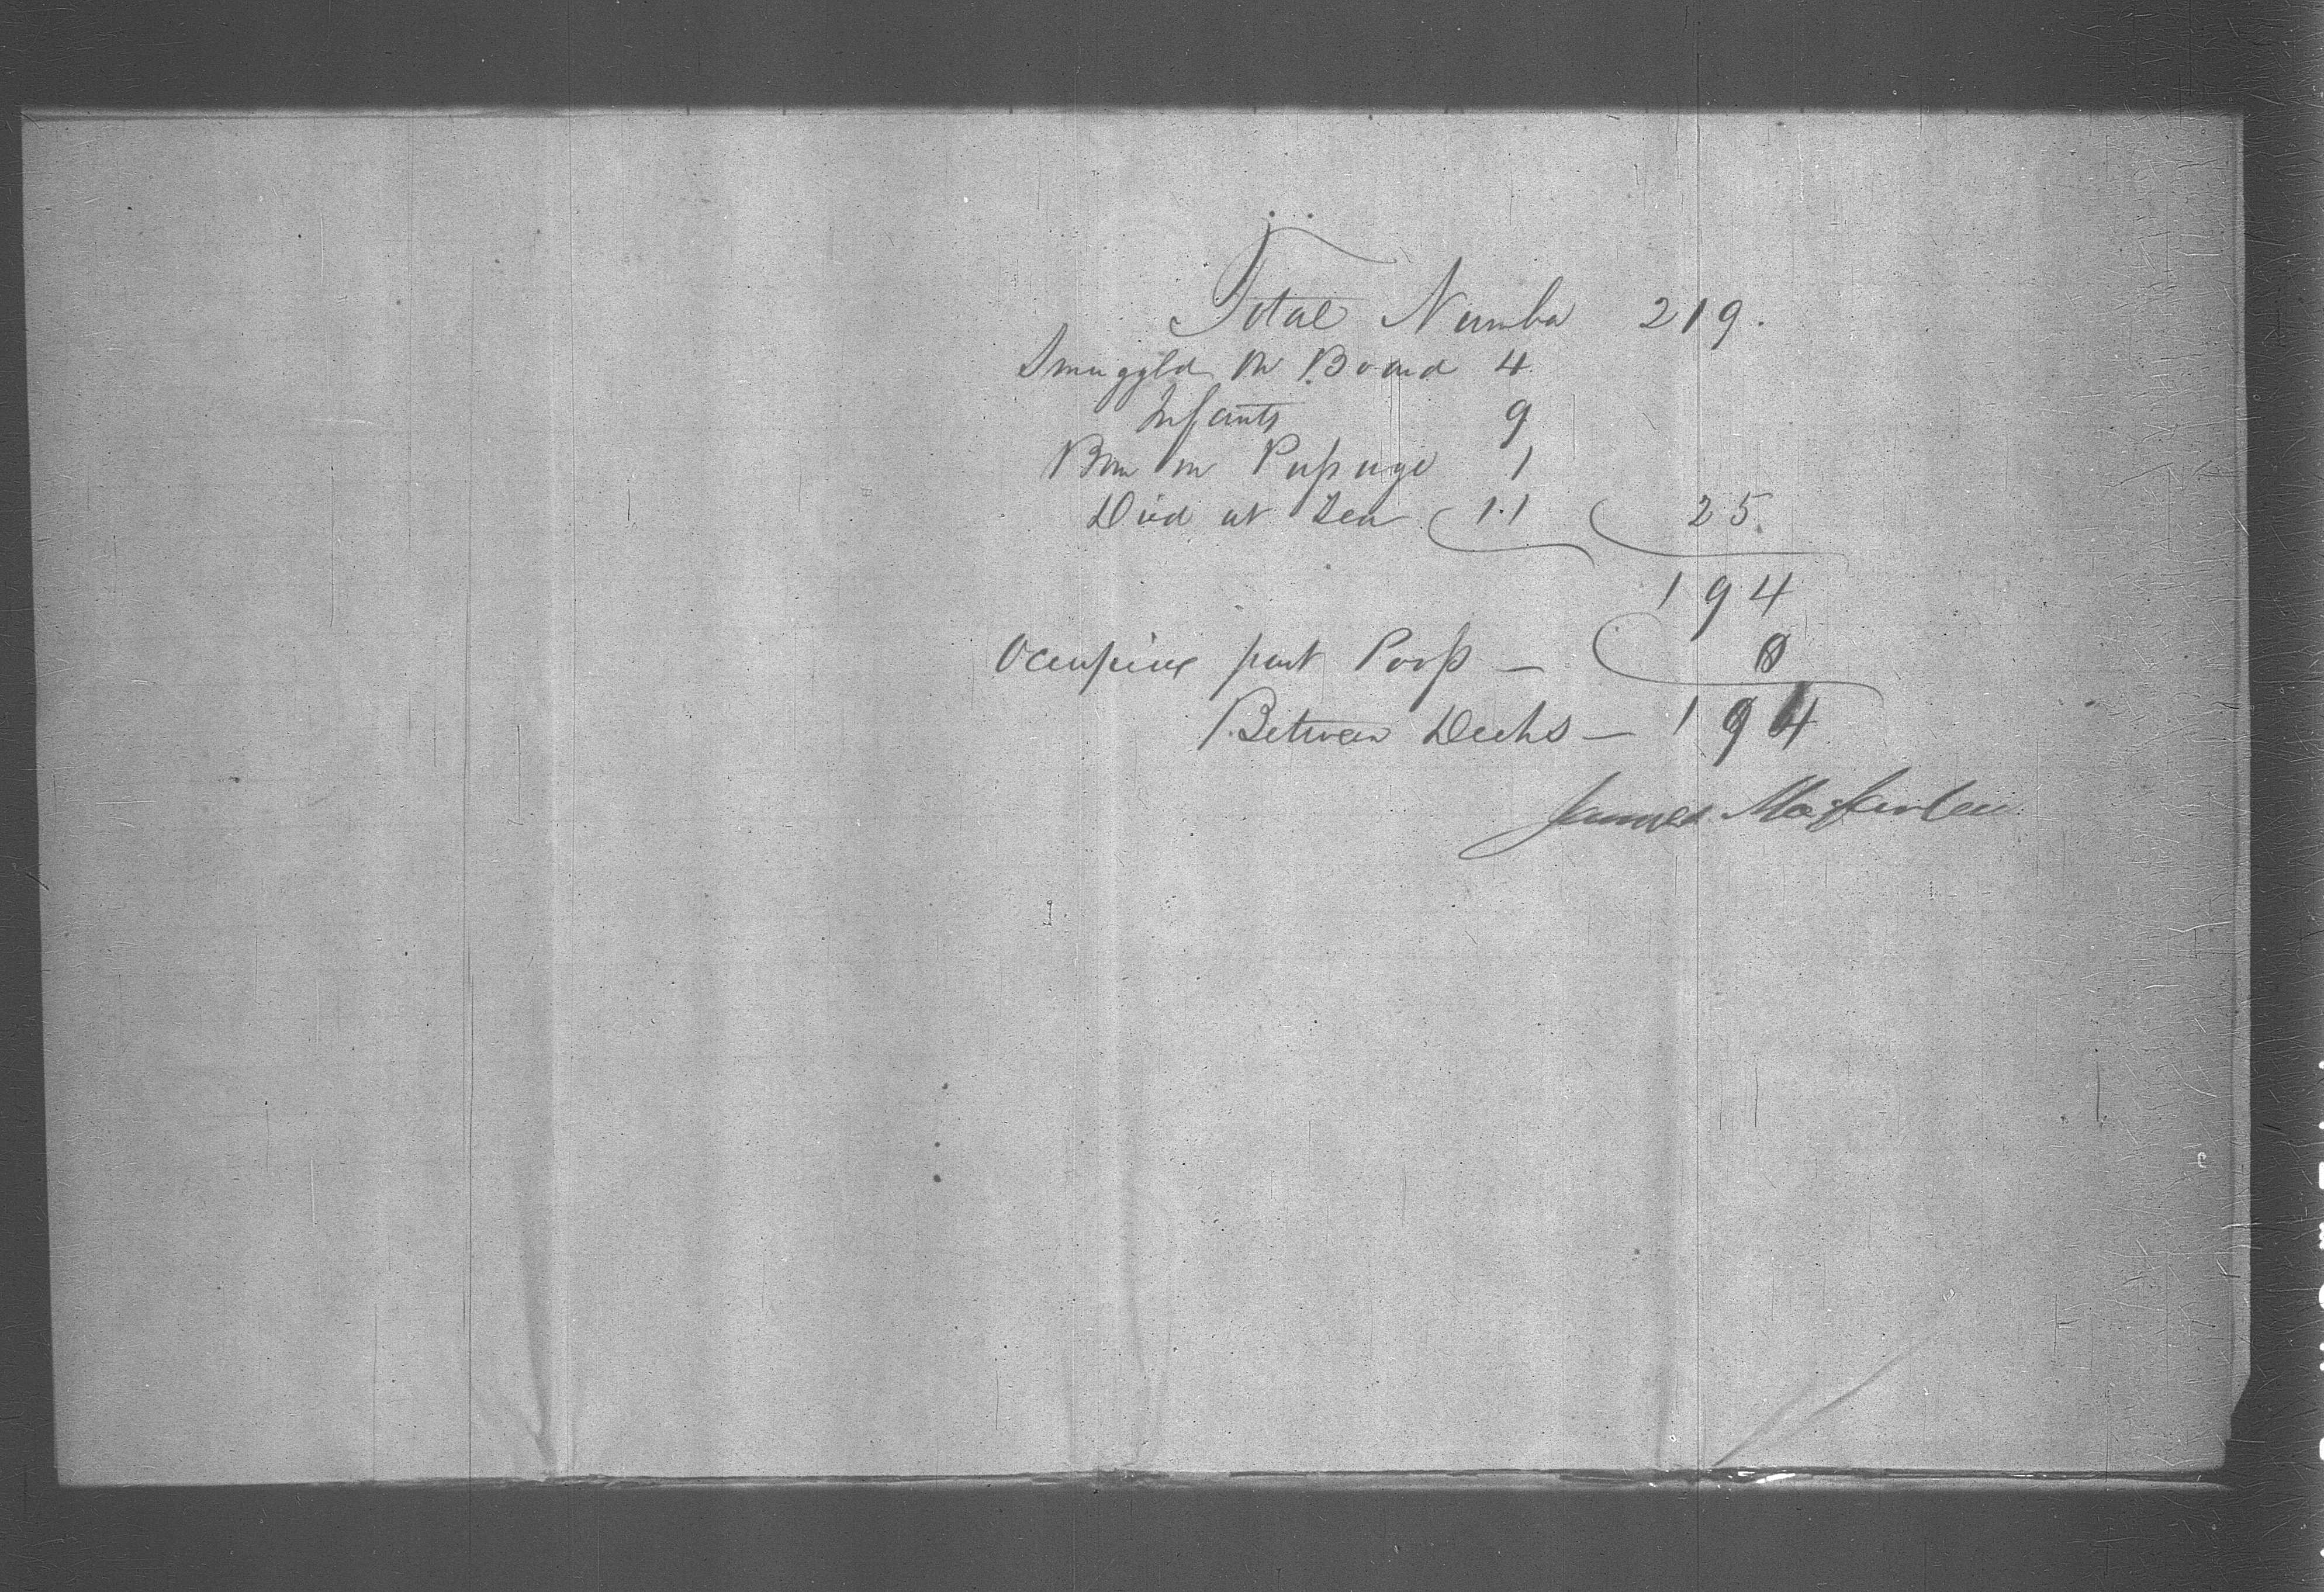 Total Number 219.
Smuggld on Board 4
Infants 9
Born on Passage 1
Died at Sea 11 25.
194
Occupied part Poop — 0
Between Decks — 194
James Macfarlan